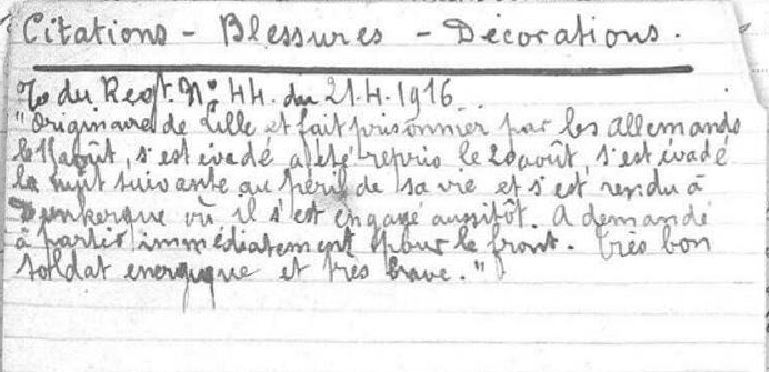 Citations - Blessures - Décorations.
du Regt. No 44. du 21.4.1916
"Originaire de Lille et fait prisonnier par les allemands
le août, s'est évadé a été repris le 20 août, s'est évadé
la nuit suivante au péril de sa vie et s'est rendu à
Dunkerque où il s'est engagé aussitôt. A demandé
à partir immédiatement pour le front. très bon
soldat energique et très brave."